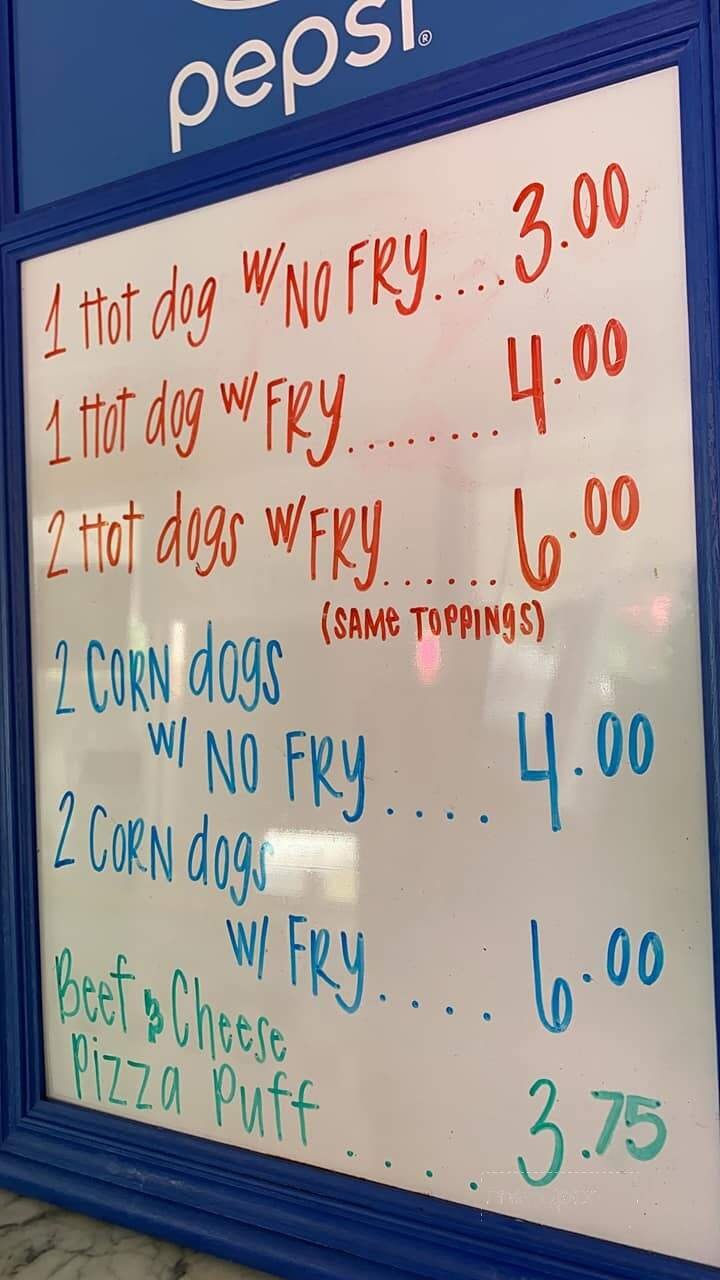 pepsi®
1 Hot dog w/ NO FRY....3.00
1 Hot dog w/ FRY........4.00
2 Hot dogs w/ FRY......6.00
(SAME TOPPINGS)
2 CORN dogs
w/ NO FRY....4.00
2 CORN dogs
w/ FRY....6.00
Beef & Cheese
Pizza Puff....3.75